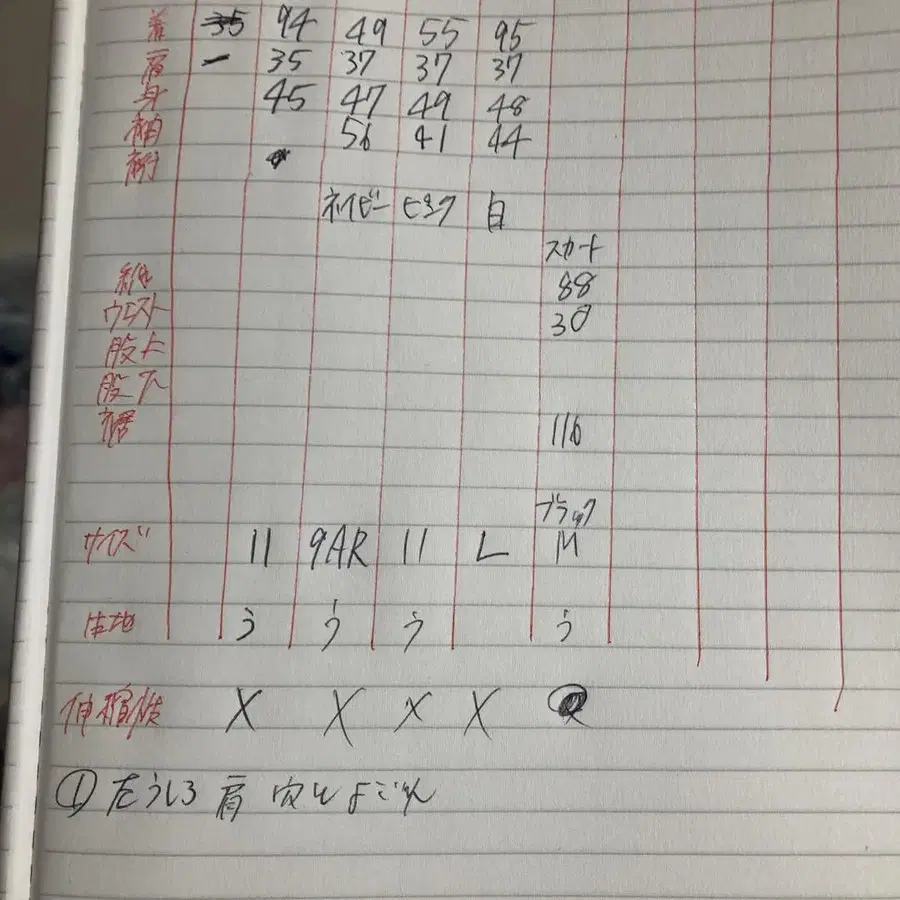 着 35 94 49 55 95
肩 - 35 37 37 37
身 45 47 49 48
袖 56 41 44
裄
ネイビー ピンク 白
スカート
総 88
ウエスト 30
股上
股下
裾 116
ブラック
サイズ 11 9AR 11 L M
生地 う う う う
伸縮性 X X X X
① 左うしろ 肩 穴と よごれ